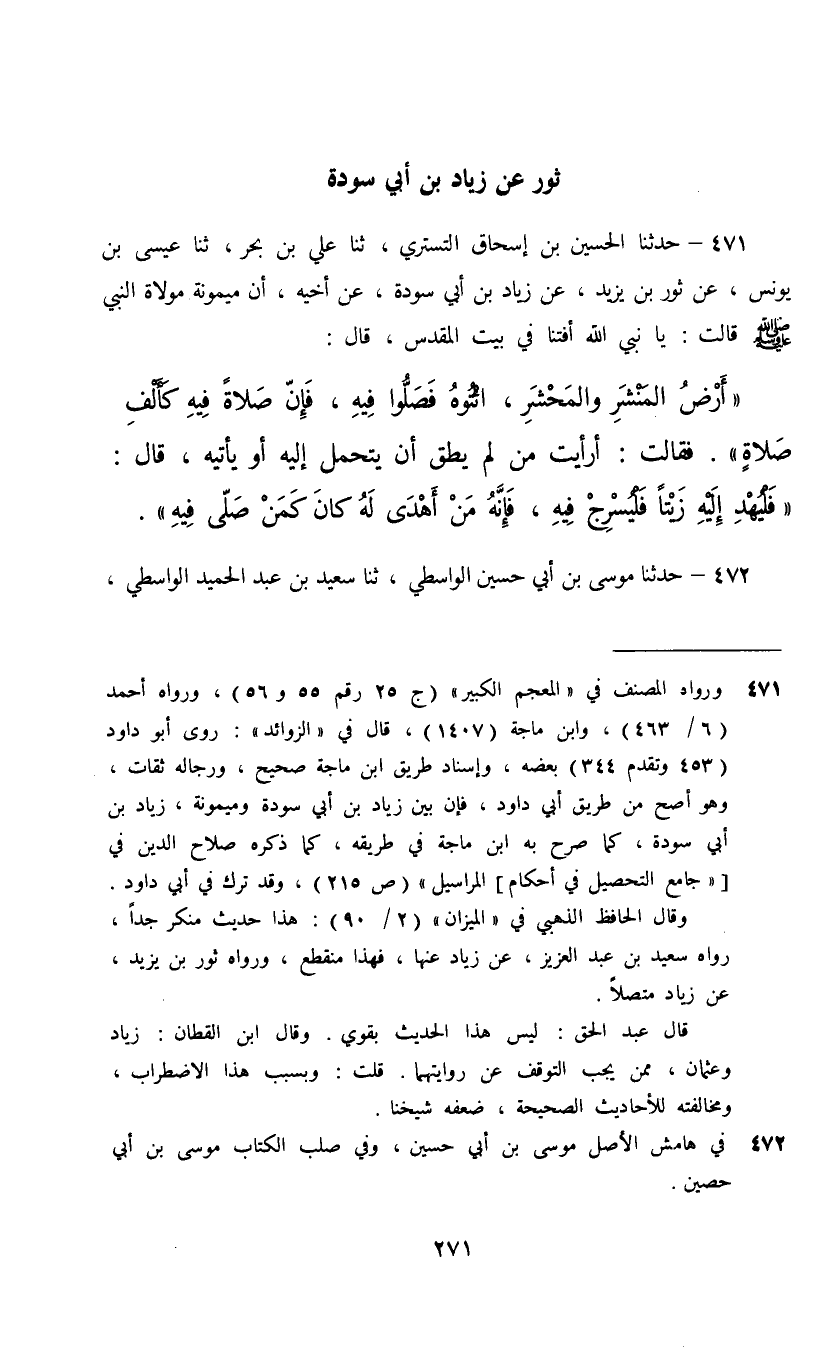 ثور عن زياد بن أبي سودة
٤٧١ – حدثنا الحسين بن إسحاق التستري ، ثنا علي بن بحر ، ثنا عيسى بن
يونس ، عن ثور بن يزيد ، عن زياد بن أبي سودة ، عن أخيه ، أن ميمونة مولاة النبي
ﷺ قالت : يا نبي الله أفتنا في بيت المقدس ، قال :
« أَرْضُ المَنْشَرِ والمَحْشَرِ ، ائْتُوهُ فَصَلُّوا فِيهِ ، فَإِنّ صَلاةً فِيهِ كَأَلْفِ
صَلاةٍ » . فقالت : أرأيت من لم يطق أن يتحمل إليه أو يأتيه ، قال :
« فَلْيُهْدِ إِلَيْهِ زَيْتاً فَلْيُسْرِجْ فِيهِ ، فَإِنَّهُ مَنْ أَهْدَى لَهُ كانَ كَمَنْ صَلّى فِيهِ » .
٤٧٢ – حدثنا موسى بن أبي حسين الواسطي ، ثنا سعيد بن عبد الحميد الواسطي ،
٤٧١ ورواه المصنف في « المعجم الكبير » (ج ٢٥ رقم ٥٥ و ٥٦) ، ورواه أحمد
(٦ / ٤٦٣) ، وابن ماجة (١٤٠٧) ، قال في « الزوائد » : روى أبو داود
(٤٥٣ وتقدم ٣٤٤) بعضه ، وإسناد طريق ابن ماجة صحيح ، ورجاله ثقات ،
وهو أصح من طريق أبي داود ، فإن بين زياد بن أبي سودة وميمونة ، زياد بن
أبي سودة ، كما صرح به ابن ماجة في طريقه ، كما ذكره صلاح الدين في
[« جامع التحصيل في أحكام] المراسيل » (ص ٢١٥) ، وقد ترك في أبي داود .
وقال الحافظ الذهبي في « الميزان » (٢ / ٩٠) : هذا حديث منكر جداً ،
رواه سعيد بن عبد العزيز ، عن زياد عنها ، فهذا منقطع ، ورواه ثور بن يزيد ،
عن زياد متصلاً .
قال عبد الحق : ليس هذا الحديث بقوي . وقال ابن القطان : زياد
وعثمان ، ممن يجب التوقف عن روايتهما . قلت : وبسبب هذا الاضطراب ،
ومخالفته للأحاديث الصحيحة ، ضعفه شيخنا .
٤٧٢ في هامش الأصل موسى بن أبي حسين ، وفي صلب الكتاب موسى بن أبي
حصين .
٢٧١